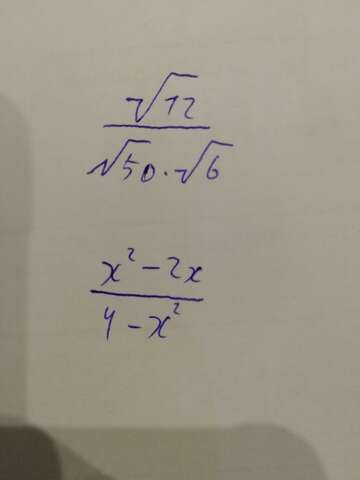 √12
√50 · √6
x² - 2x
4 - x²